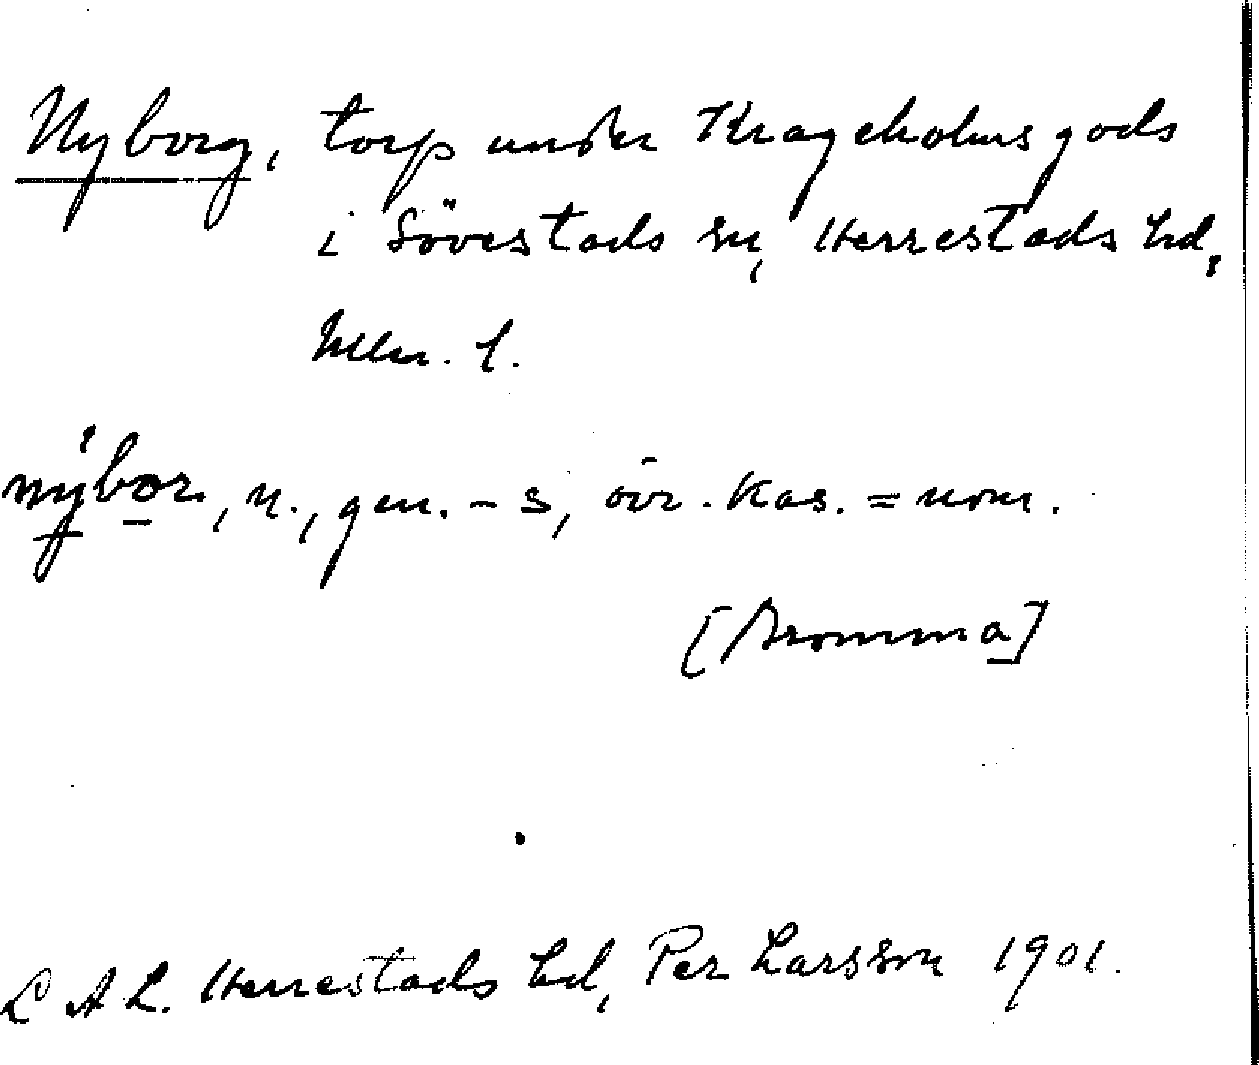 Nyborg, torp under Krageholms gods
i Sövestads sn, Herrestads hd,
Mlm. l.
nýbor, n., gen. -s, övr. kas. = nom.
[Bromma]
L A L. Herrestads hd, Per Larsson 1901.